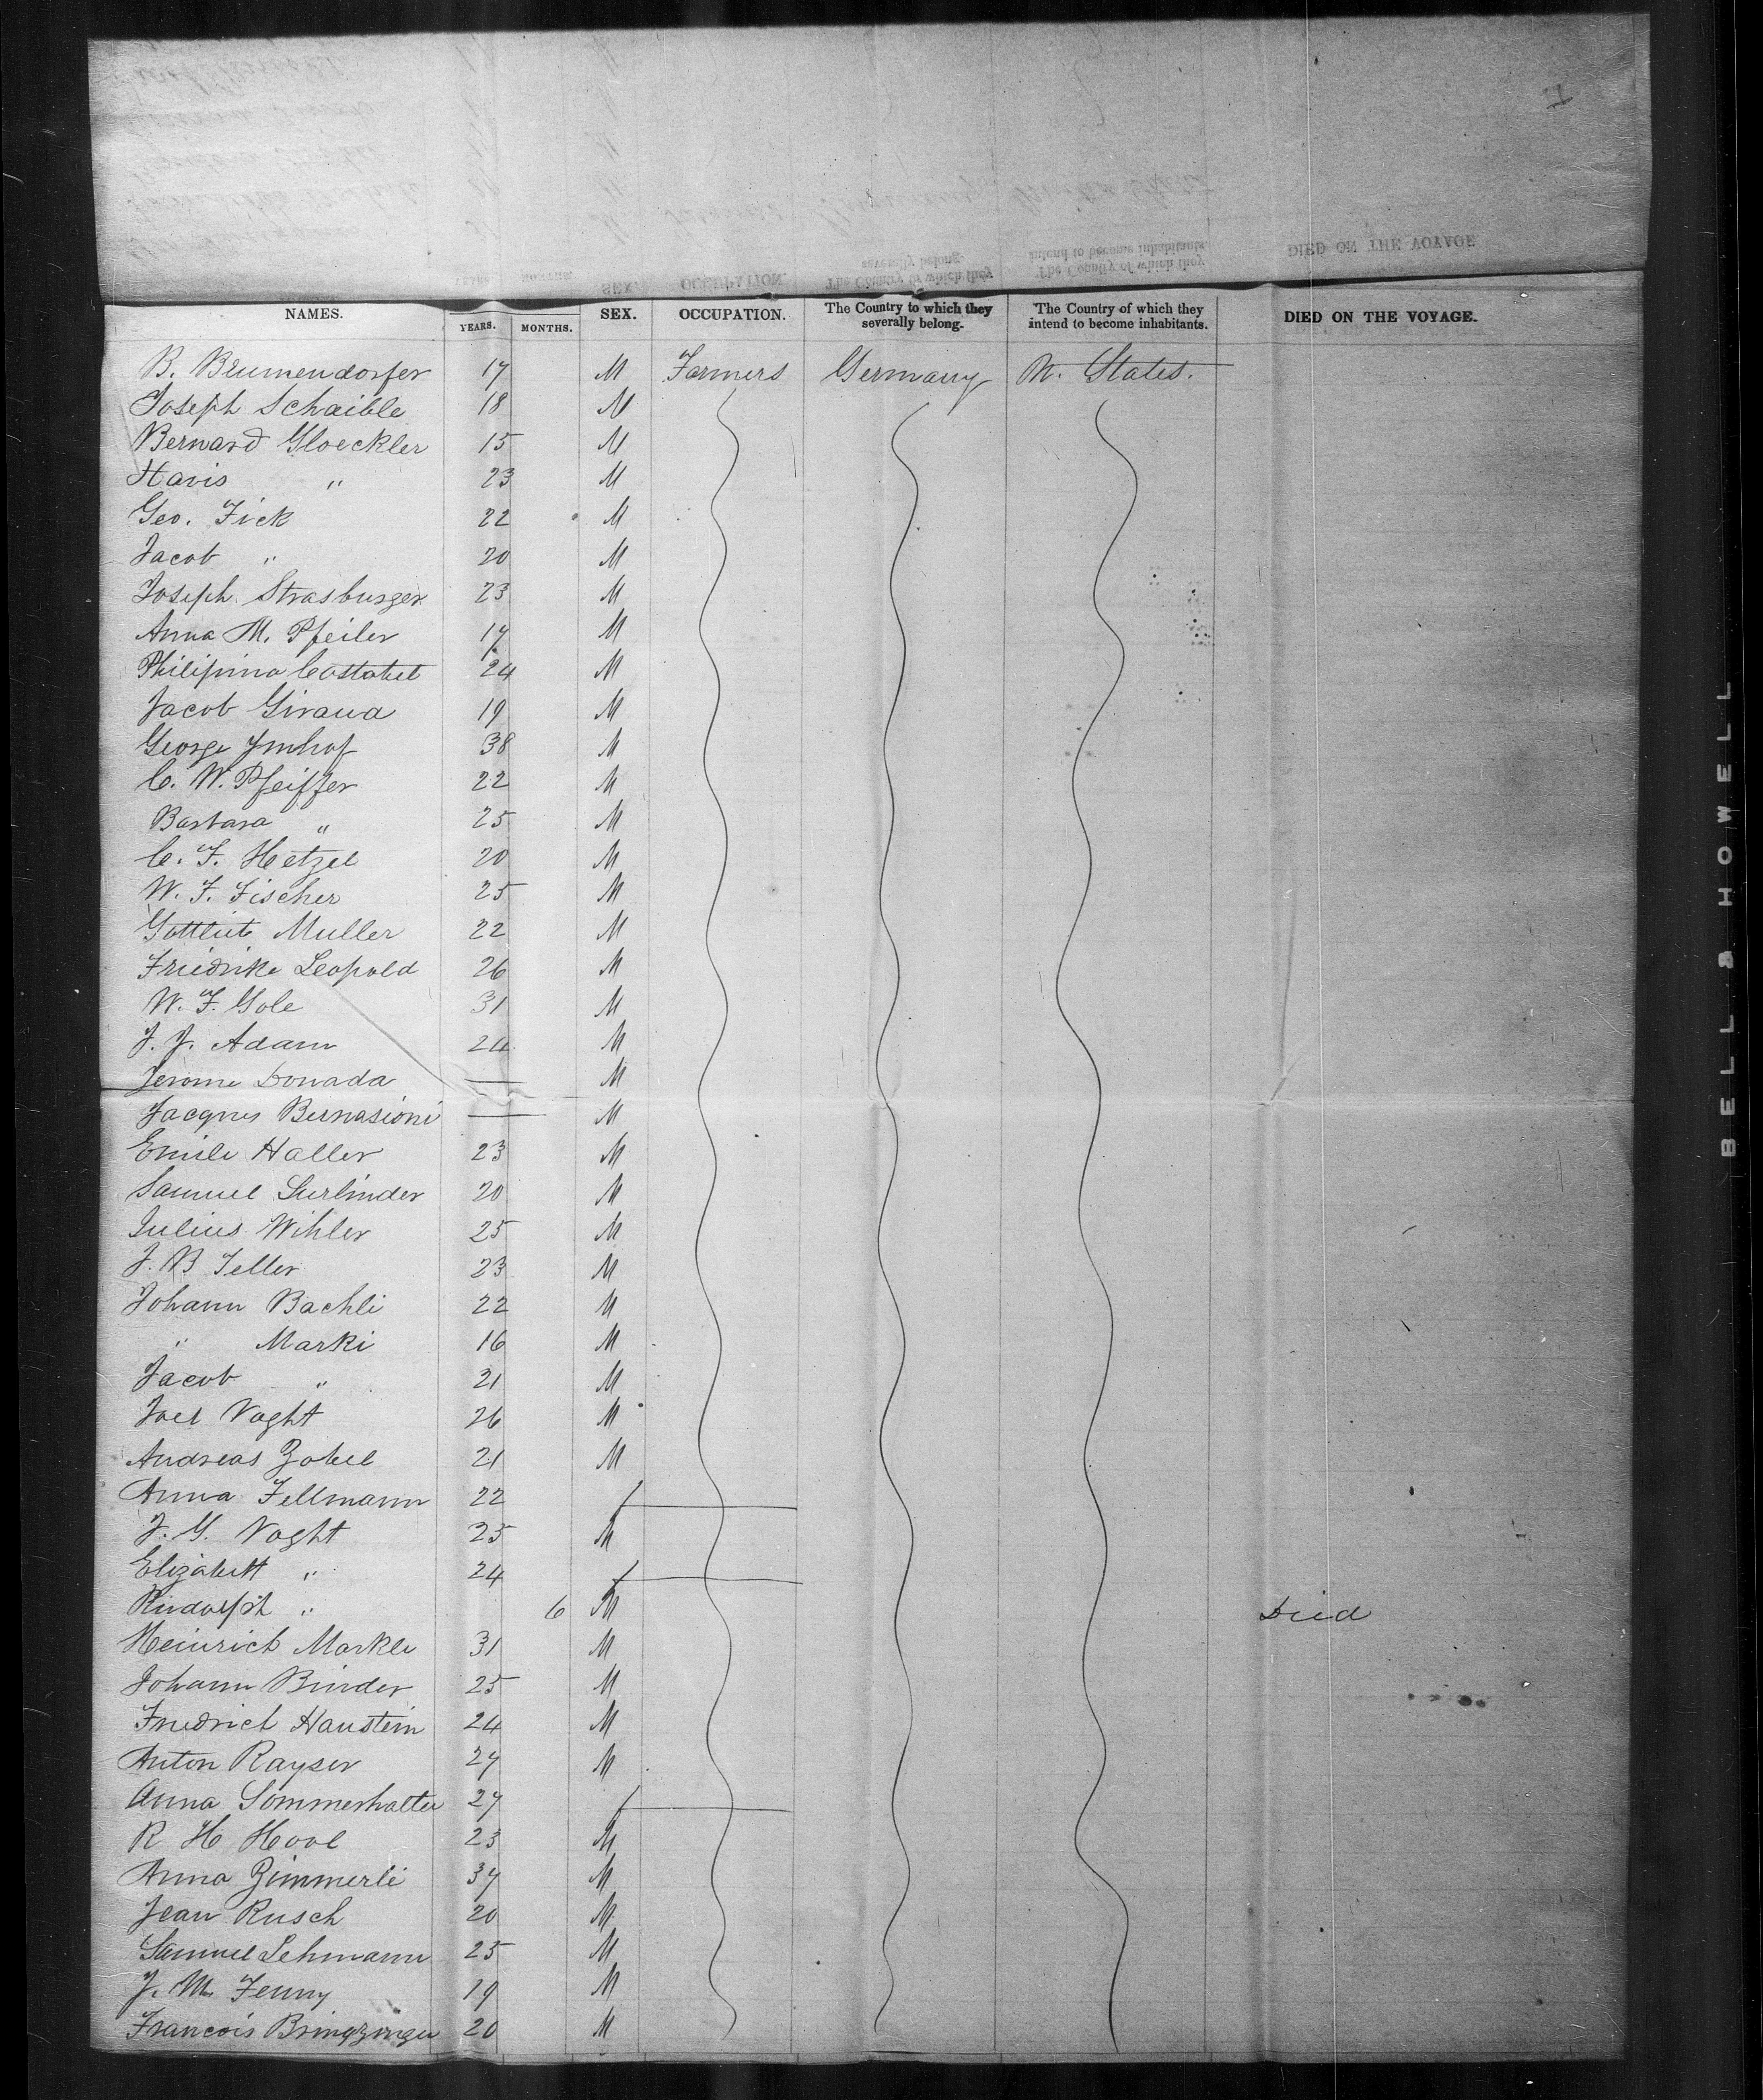 NAMES. YEARS. MONTHS. SEX. OCCUPATION. The Country to which they severally belong. The Country of which they intend to become inhabitants. DIED ON THE VOYAGE.
B. Blumendorfer 17 M Farmers Germany U. States.
Joseph Schaible 18 M
Bernard Gloeckler 15 M
Havis " 23 M
Geo. Fick 22 M
Jacob " 20 M
Joseph Strasburger 23 M
Anna M. Pfeiler 17 M
Philipina Costabel 24 M
Jacob Giraud 19 M
George Imhof 38 M
C. W. Pfeiffer 22 M
Barbara " 25 M
C. F. Hetzel 20 M
W. F. Fischer 25 M
Gottlieb Muller 22 M
Friedrike Leopold 26 M
W. F. Gole 31 M
J. J. Adam 24 M
Jerome Donada — M
Jacques Bernasioni — M
Emile Haller 23 M
Samuel Surlinder 20 M
Julius Wihler 25 M
J. B Teller 23 M
Johann Bachli 22 M
" Marki 16 M
Jacob " 21 M
Joel Voght 26 M
Andreas Zobel 21 M
Anna Fellmann 22 F
J. G. Voght 25 M
Elizabeth " 24 F
Rudolph " 6 M Died
Heinrich Markle 31 M
Johann Binder 25 M
Friedrich Haustein 24 M
Anton Rayser 27 M
Anna Sommerhalter 27 F
R H Hool 23 M
Anna Zimmerli 37 M
Jean Rusch 20 M
Samuel Lehmann 25 M
J. M. Jenny 19 M
Francois Bringzinger 20 M
BELL & HOWELL